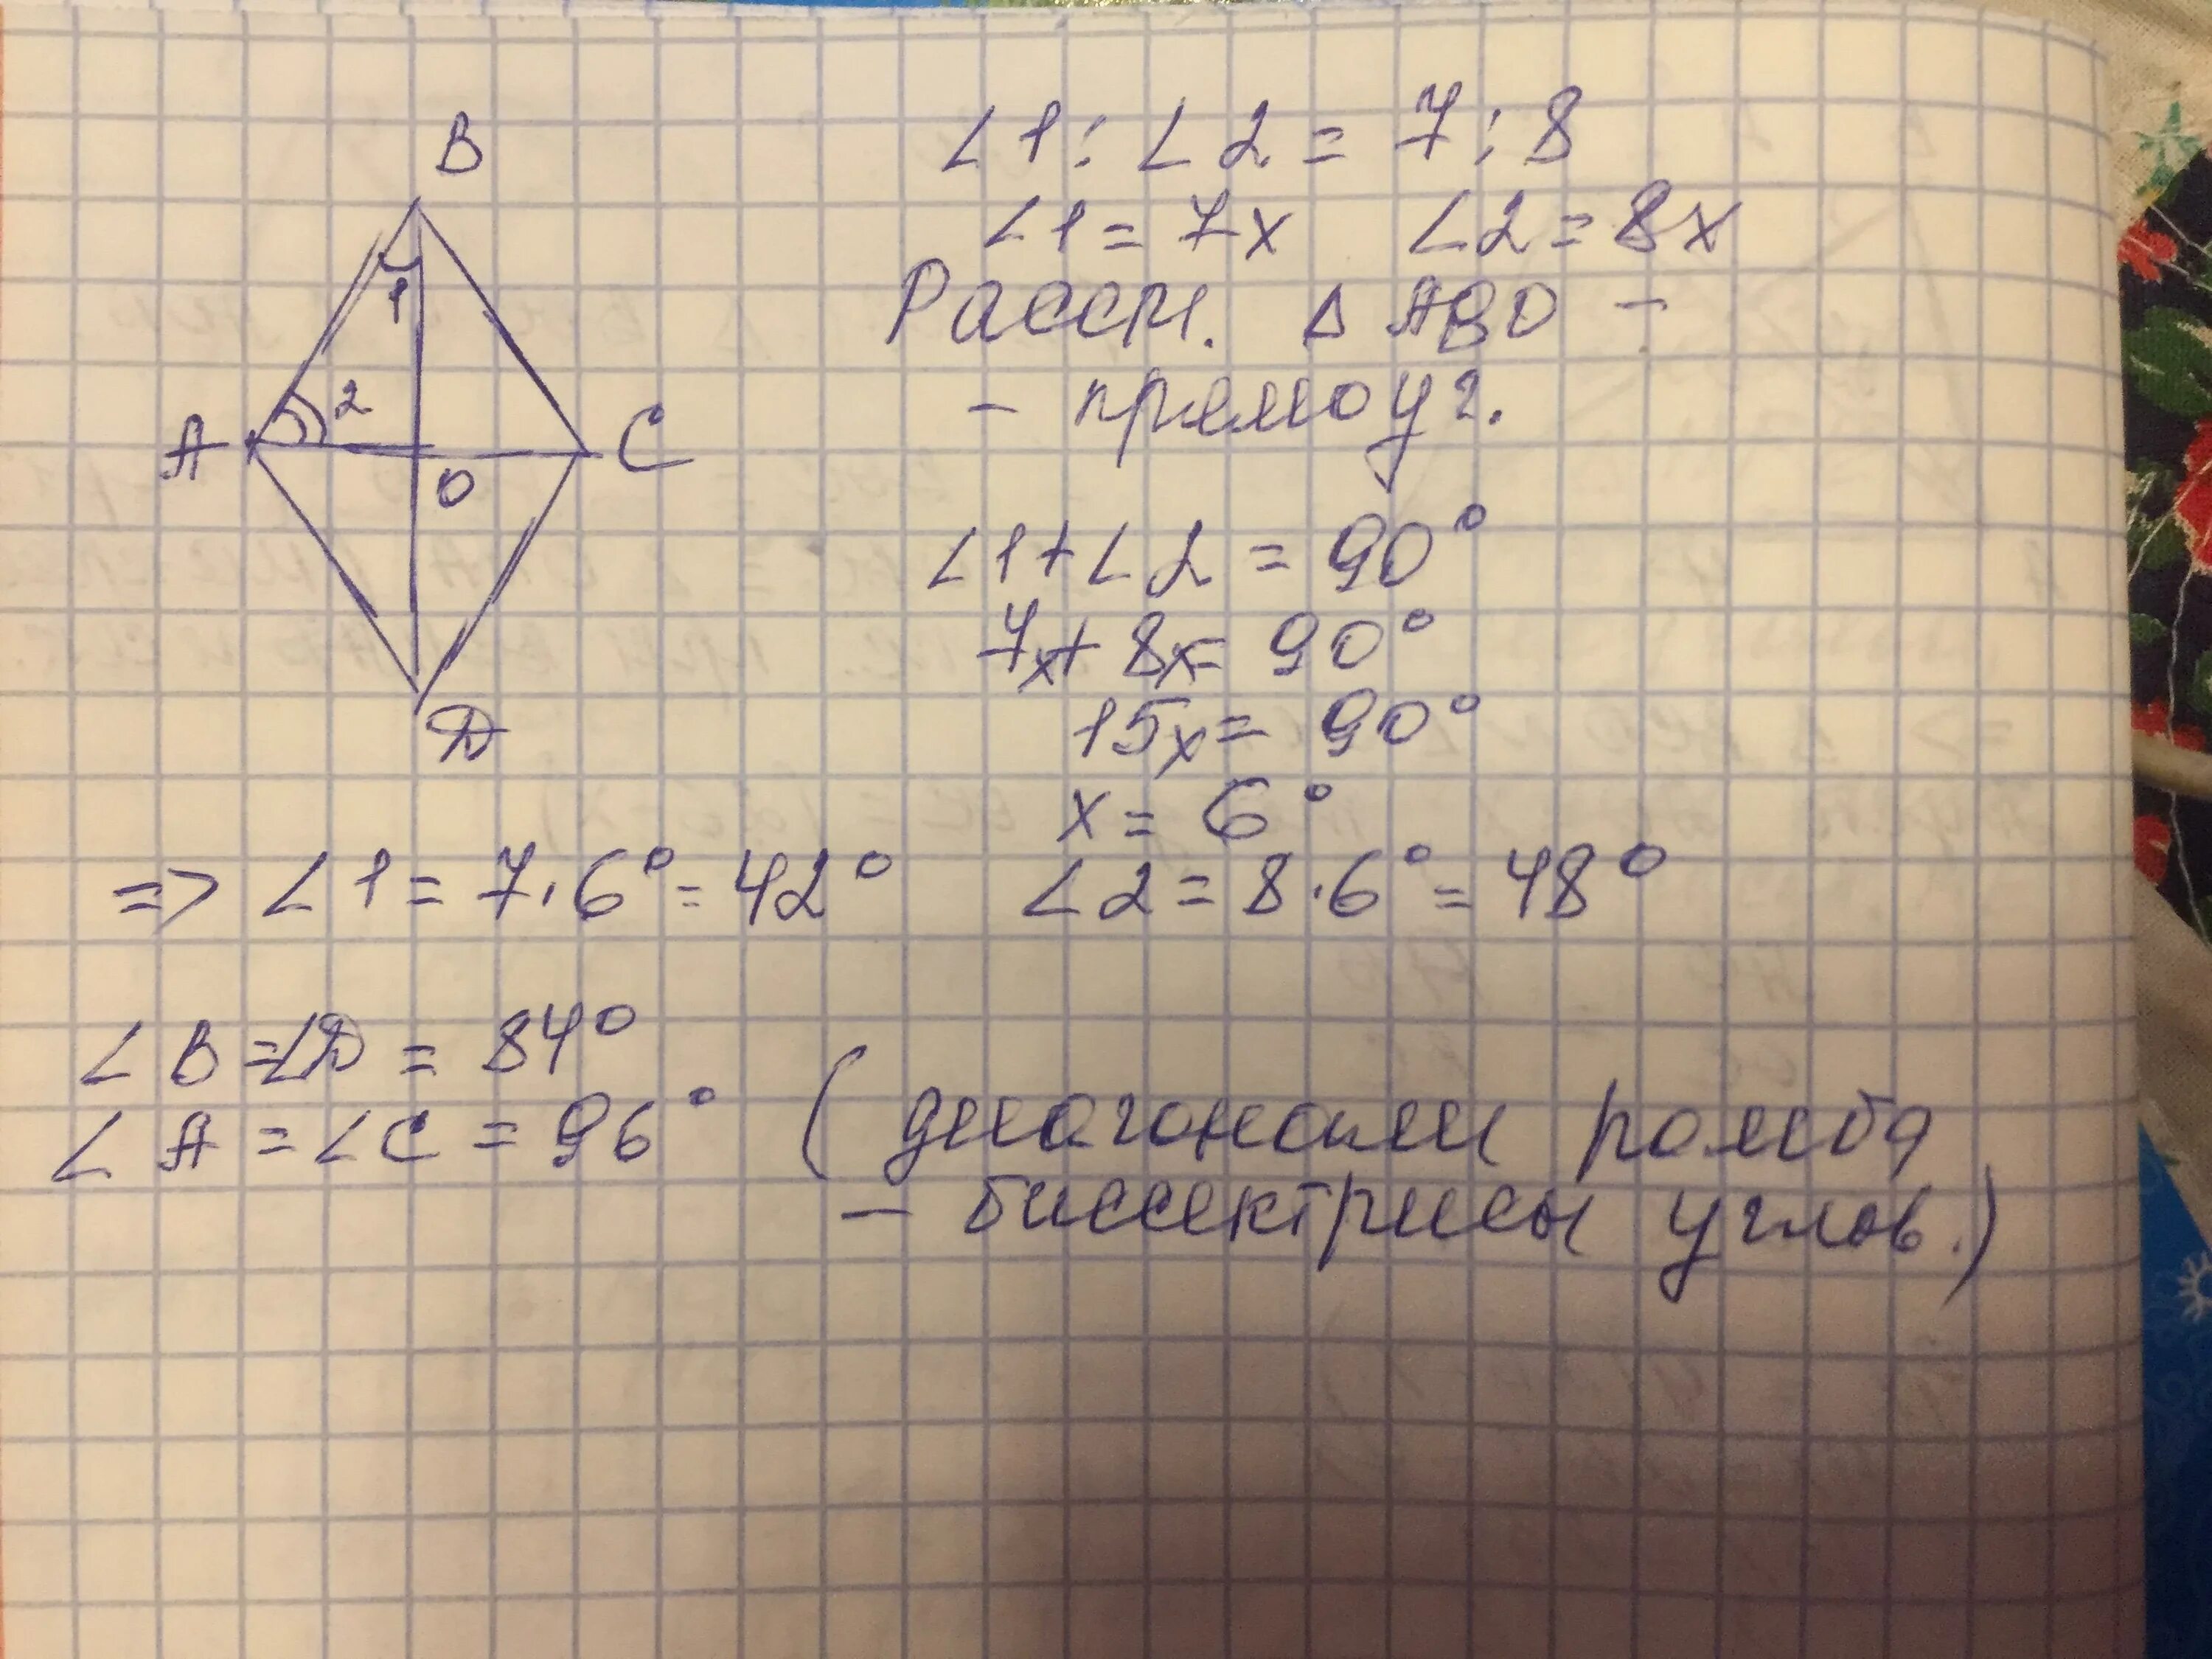 B
1
2
A
O
C
D
∠1 : ∠2 = 7 : 8
∠1 = 7x ∠2 = 8x
Рассм. Δ ABO –
– прямоуг.
∠1 + ∠2 = 90°
7x + 8x = 90°
15x = 90°
x = 6°
=> ∠1 = 7·6° = 42° ∠2 = 8·6° = 48°
∠B = ∠D = 84°
∠A = ∠C = 96° (диагонали ромба
– биссектрисы углов.)